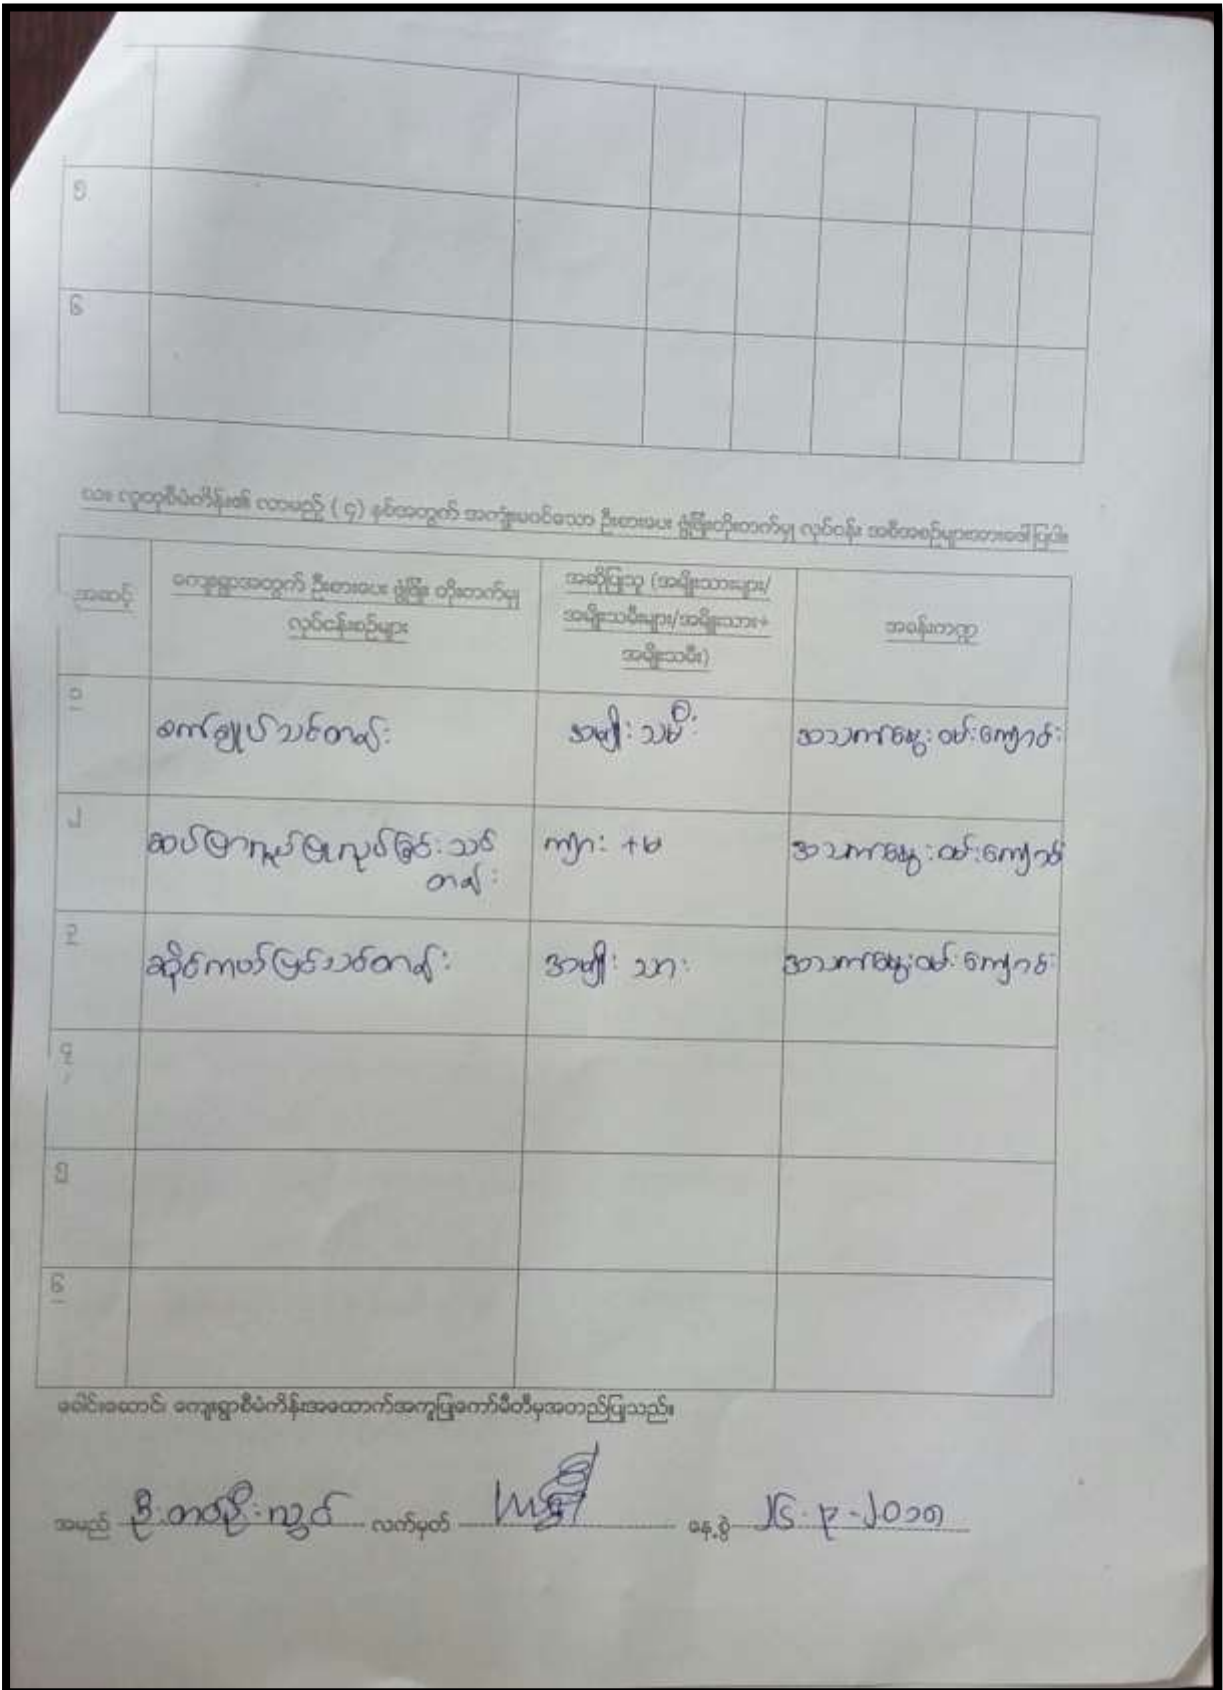 ၅
၆
လူထုစီမံကိန်း၏ လာမည့် (၄) နှစ်အတွက် အကျုံးမဝင်သော ဦးစားပေး ဖွံ့ဖြိုးတိုးတက်မှု လုပ်ငန်း အစီအစဉ်များအားဖော်ပြပါ။
အဆင့် ကျေးရွာအတွက် ဦးစားပေး ဖွံ့ဖြိုး တိုးတက်မှု လုပ်ငန်းစဉ်များ အဆိုပြုသူ (အမျိုးသားများ/ အမျိုးသမီးများ/အမျိုးသား+ အမျိုးသမီး) အခန်းကဏ္ဍ
၁ စက်ချုပ်သင်တန်း အမျိုးသမီး အသက်မွေးဝမ်းကျောင်း
၂ ဆပ်ပြာရည်ပြုလုပ်ခြင်းသင်တန်း ကျား+မ အသက်မွေးဝမ်းကျောင်း
၃ ဆိုင်ကယ်ပြင်သင်တန်း အမျိုးသား အသက်မွေးဝမ်းကျောင်း
၄
၅
၆
ခေါင်းဆောင်၊ ကျေးရွာစီမံကိန်းအထောက်အကူပြုကော်မီတီမှအတည်ပြုသည်။
အမည် ဦး လွင် လက်မှတ် နေ့စွဲ